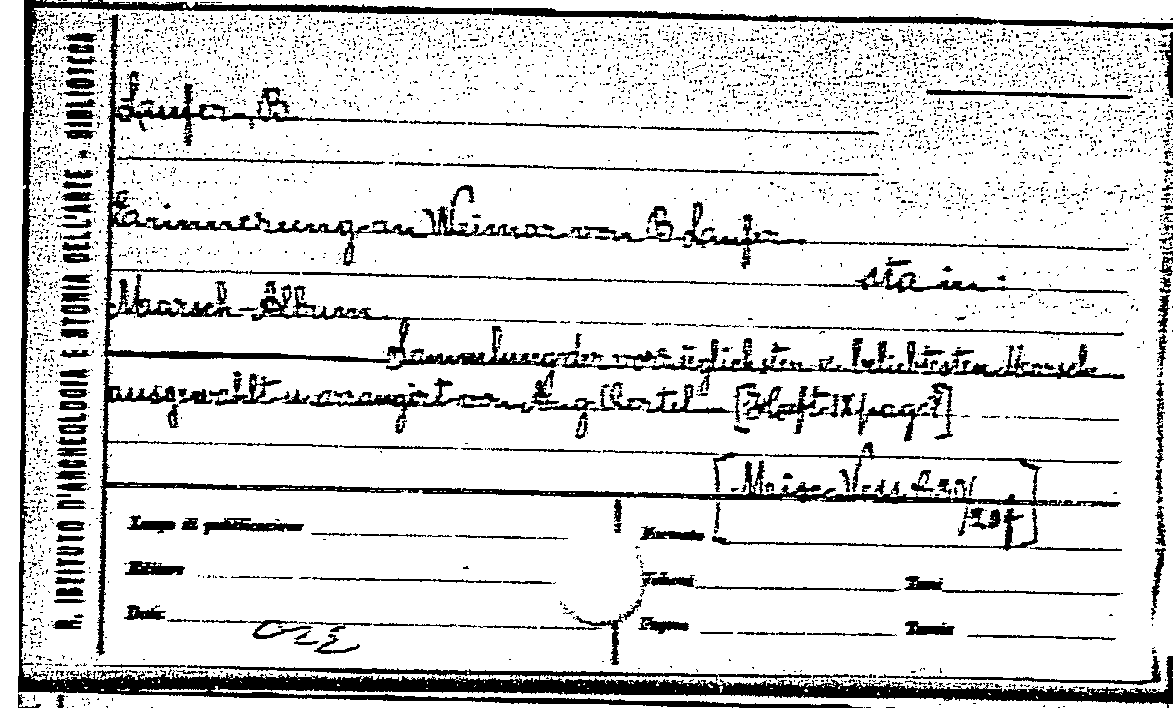 R. ISTITUTO D'ARCHEOLOGIA E STORIA DELL'ARTE - BIBLIOTECA
Laufer, B
Erinnerung an Weimar von B Laufer
sta in:
Marsch-Album
Sammlung der vorzüglichsten u. beliebtesten Marsch
ausgewählt u. arangirt von Aug Oertel [Heft IX pag
Mus. Vess
Luogo di pubblicazione
Formato
Editore
Volumi
Tomi
Data
Pagine
Tavole